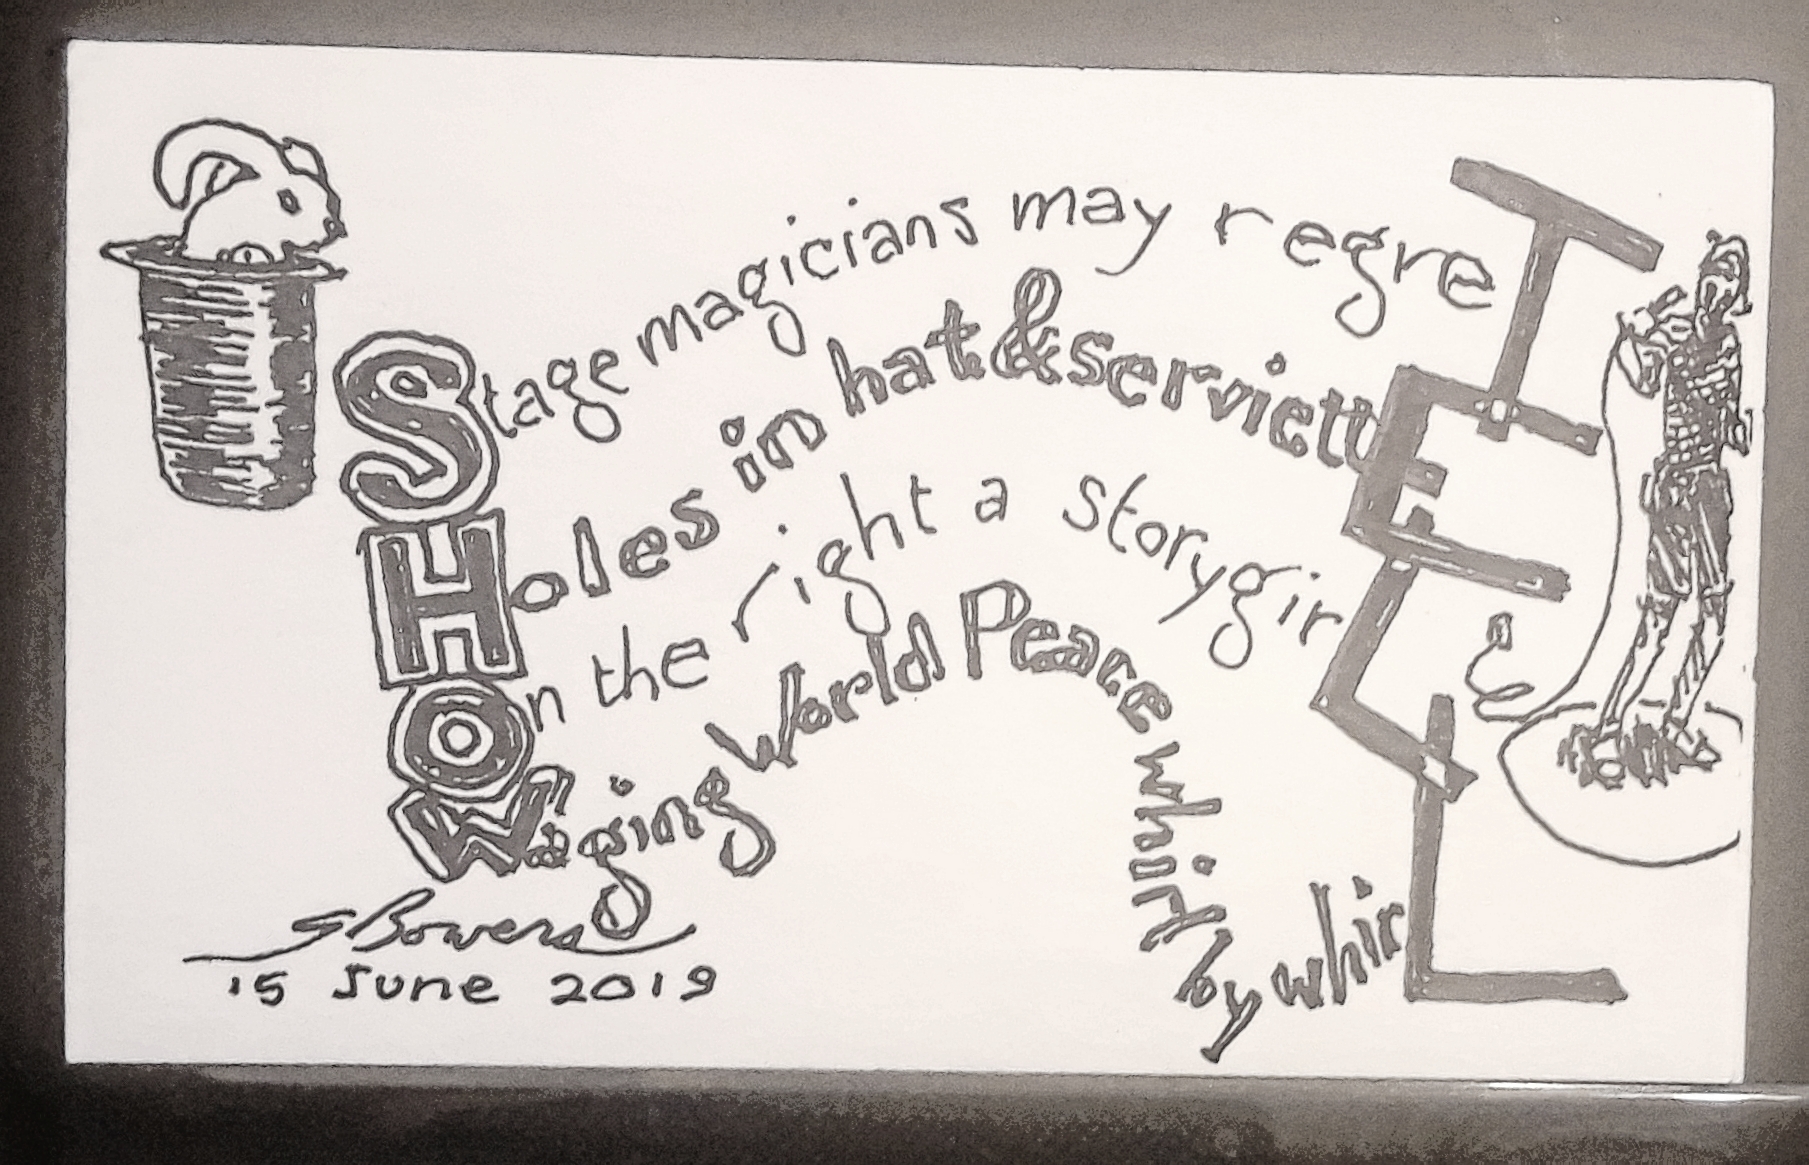 Stage magicians may regreT
Holes in hat & serviettE
On the right a storygirL
Waging World Peace whirl by whirL
SBowers
15 June 2019